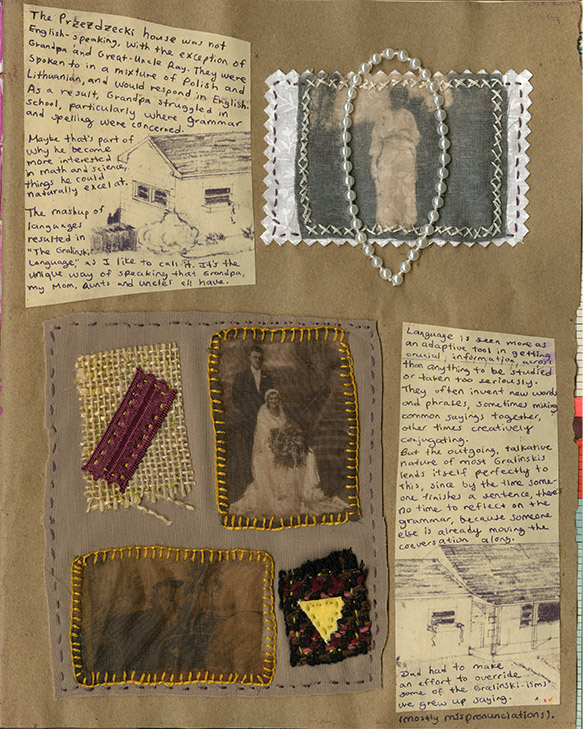 The Przezdzecki house was not
English-speaking, with the exception of
Grandpa and Great-Uncle Ray. They were
spoken to in a mixture of Polish and
Lithuanian, and would respond in English.
As a result, Grandpa struggled in
school, particularly where grammar
and spelling were concerned.
Maybe that's part of
why he become
more interested
in math and science,
things he could
naturally excel at.
The mashup of
languages
resulted in
"The Gralinski
Language," as I like to call it. It's the
unique way of speaking that Grandpa,
my Mom, Aunts and Uncles all have.
Language is seen more as
an adaptive tool in getting
crucial information across
than anything to be studied
or taken too seriously.
They often invent new words
and phrases, sometimes mixing
common sayings together,
other times creatively
conjugating.
But the outgoing, talkative
nature of most Gralinskis
lends itself perfectly to
this, since by the time some-
one finishes a sentence, there's
no time to reflect on the
grammar, because someone
else is already moving the
conversation along.
Dad had to make
an effort to override
some of the Gralinski-isms
we grew up saying.
(mostly mispronunciations).